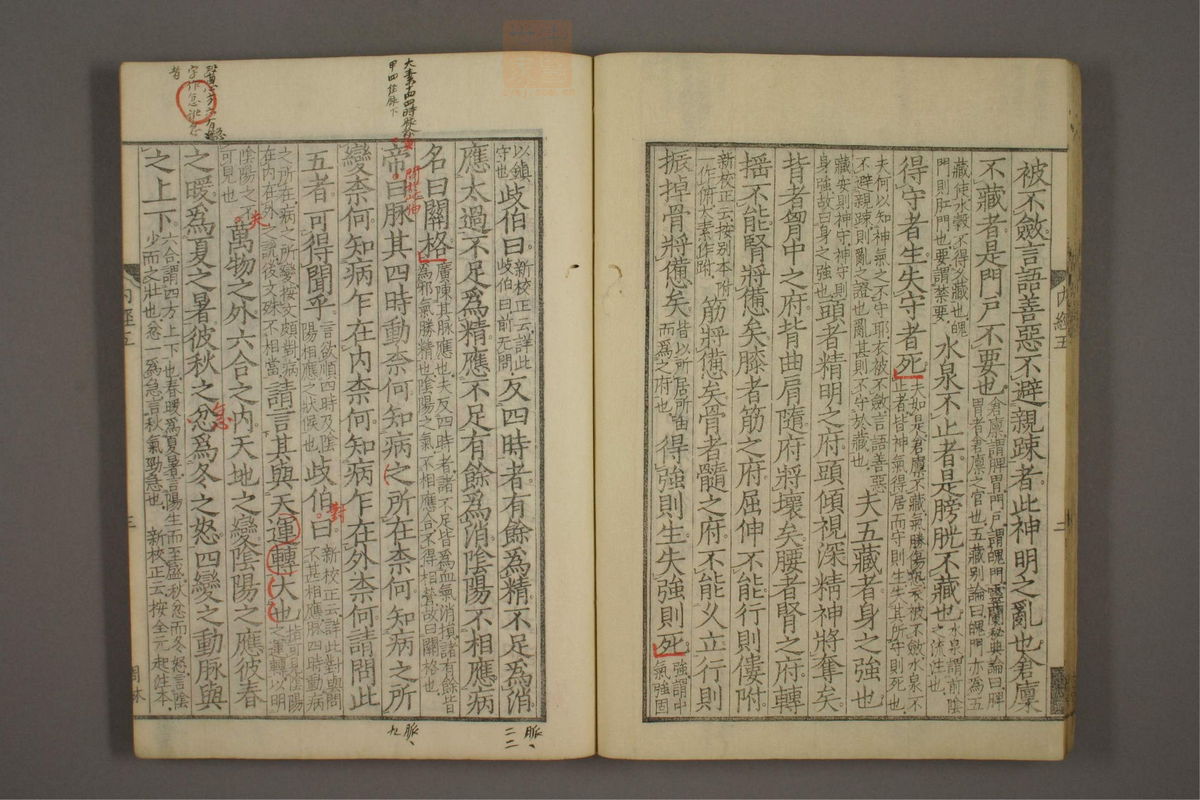 被不斂言語善惡不避親踈者此神明之亂也倉廩
不藏者是門戶不要也倉廩謂脾胃門戶謂魄門靈蘭秘典論曰脾胃者倉廩之官也五藏別論曰魄門亦為五
藏使水穀不得久藏也魄門則肛門也要謂禁要水泉不止者是膀胱不藏也水泉謂前陰之流注也
得守者生失守者死夫如是倉廩不藏氣勝傷恐衣被不斂水泉不止者皆神氣得居而守則生失其所守則死也
夫何以知神氣之不守耶衣被不斂言語善惡不避親踈則亂之證也亂甚則不守於藏也夫五藏者身之強也
藏安則神守神守則身強故曰身之強也頭者精明之府頭傾視深精神將奪矣
背者胷中之府背曲肩隨府將壞矣腰者腎之府轉
搖不能腎將憊矣膝者筋之府屈伸不能行則僂附
新校正云按別本附一作俯太素作跗筋將憊矣骨者髓之府不能久立行則
振掉骨將憊矣皆以所居所由而為之府也得強則生失強則死強謂中氣強固
內經五
二
以鎮守也歧伯曰新校正云詳此歧伯曰前无問反四時者有餘為精不足為消
應太過不足為精應不足有餘為消陰陽不相應病
名曰關格廣陳其脉應也夫反四時者諸不足皆為血氣消損諸有餘皆為邪氣勝精也陰陽之氣不相應合不得相營故曰關格也
帝曰脉其四時動柰何知病之所在柰何知病之所
變柰何知病乍在內柰何知病乍在外柰何請問此
五者可得聞乎言欲順四時及陰陽相應之狀候也歧伯曰新校正云詳此對與問不甚相應脉四時動病
之所在病之所變按文頗對病在內在外之說後文殊不相當請言其與天運轉大也指可見陰陽之運轉以明
陰陽之不可見也萬物之外六合之內天地之變陰陽之應彼春
之暖為夏之暑彼秋之忿為冬之怒四變之動脉與
之上下六合謂四方上下也春暖為夏暑言陽生而至盛秋忿而冬怒言陰少而之壯也忿一為急言秋氣勁急也新校正云按全元起注本
內經五
三
對
夫
急
脈、二二
脈、九